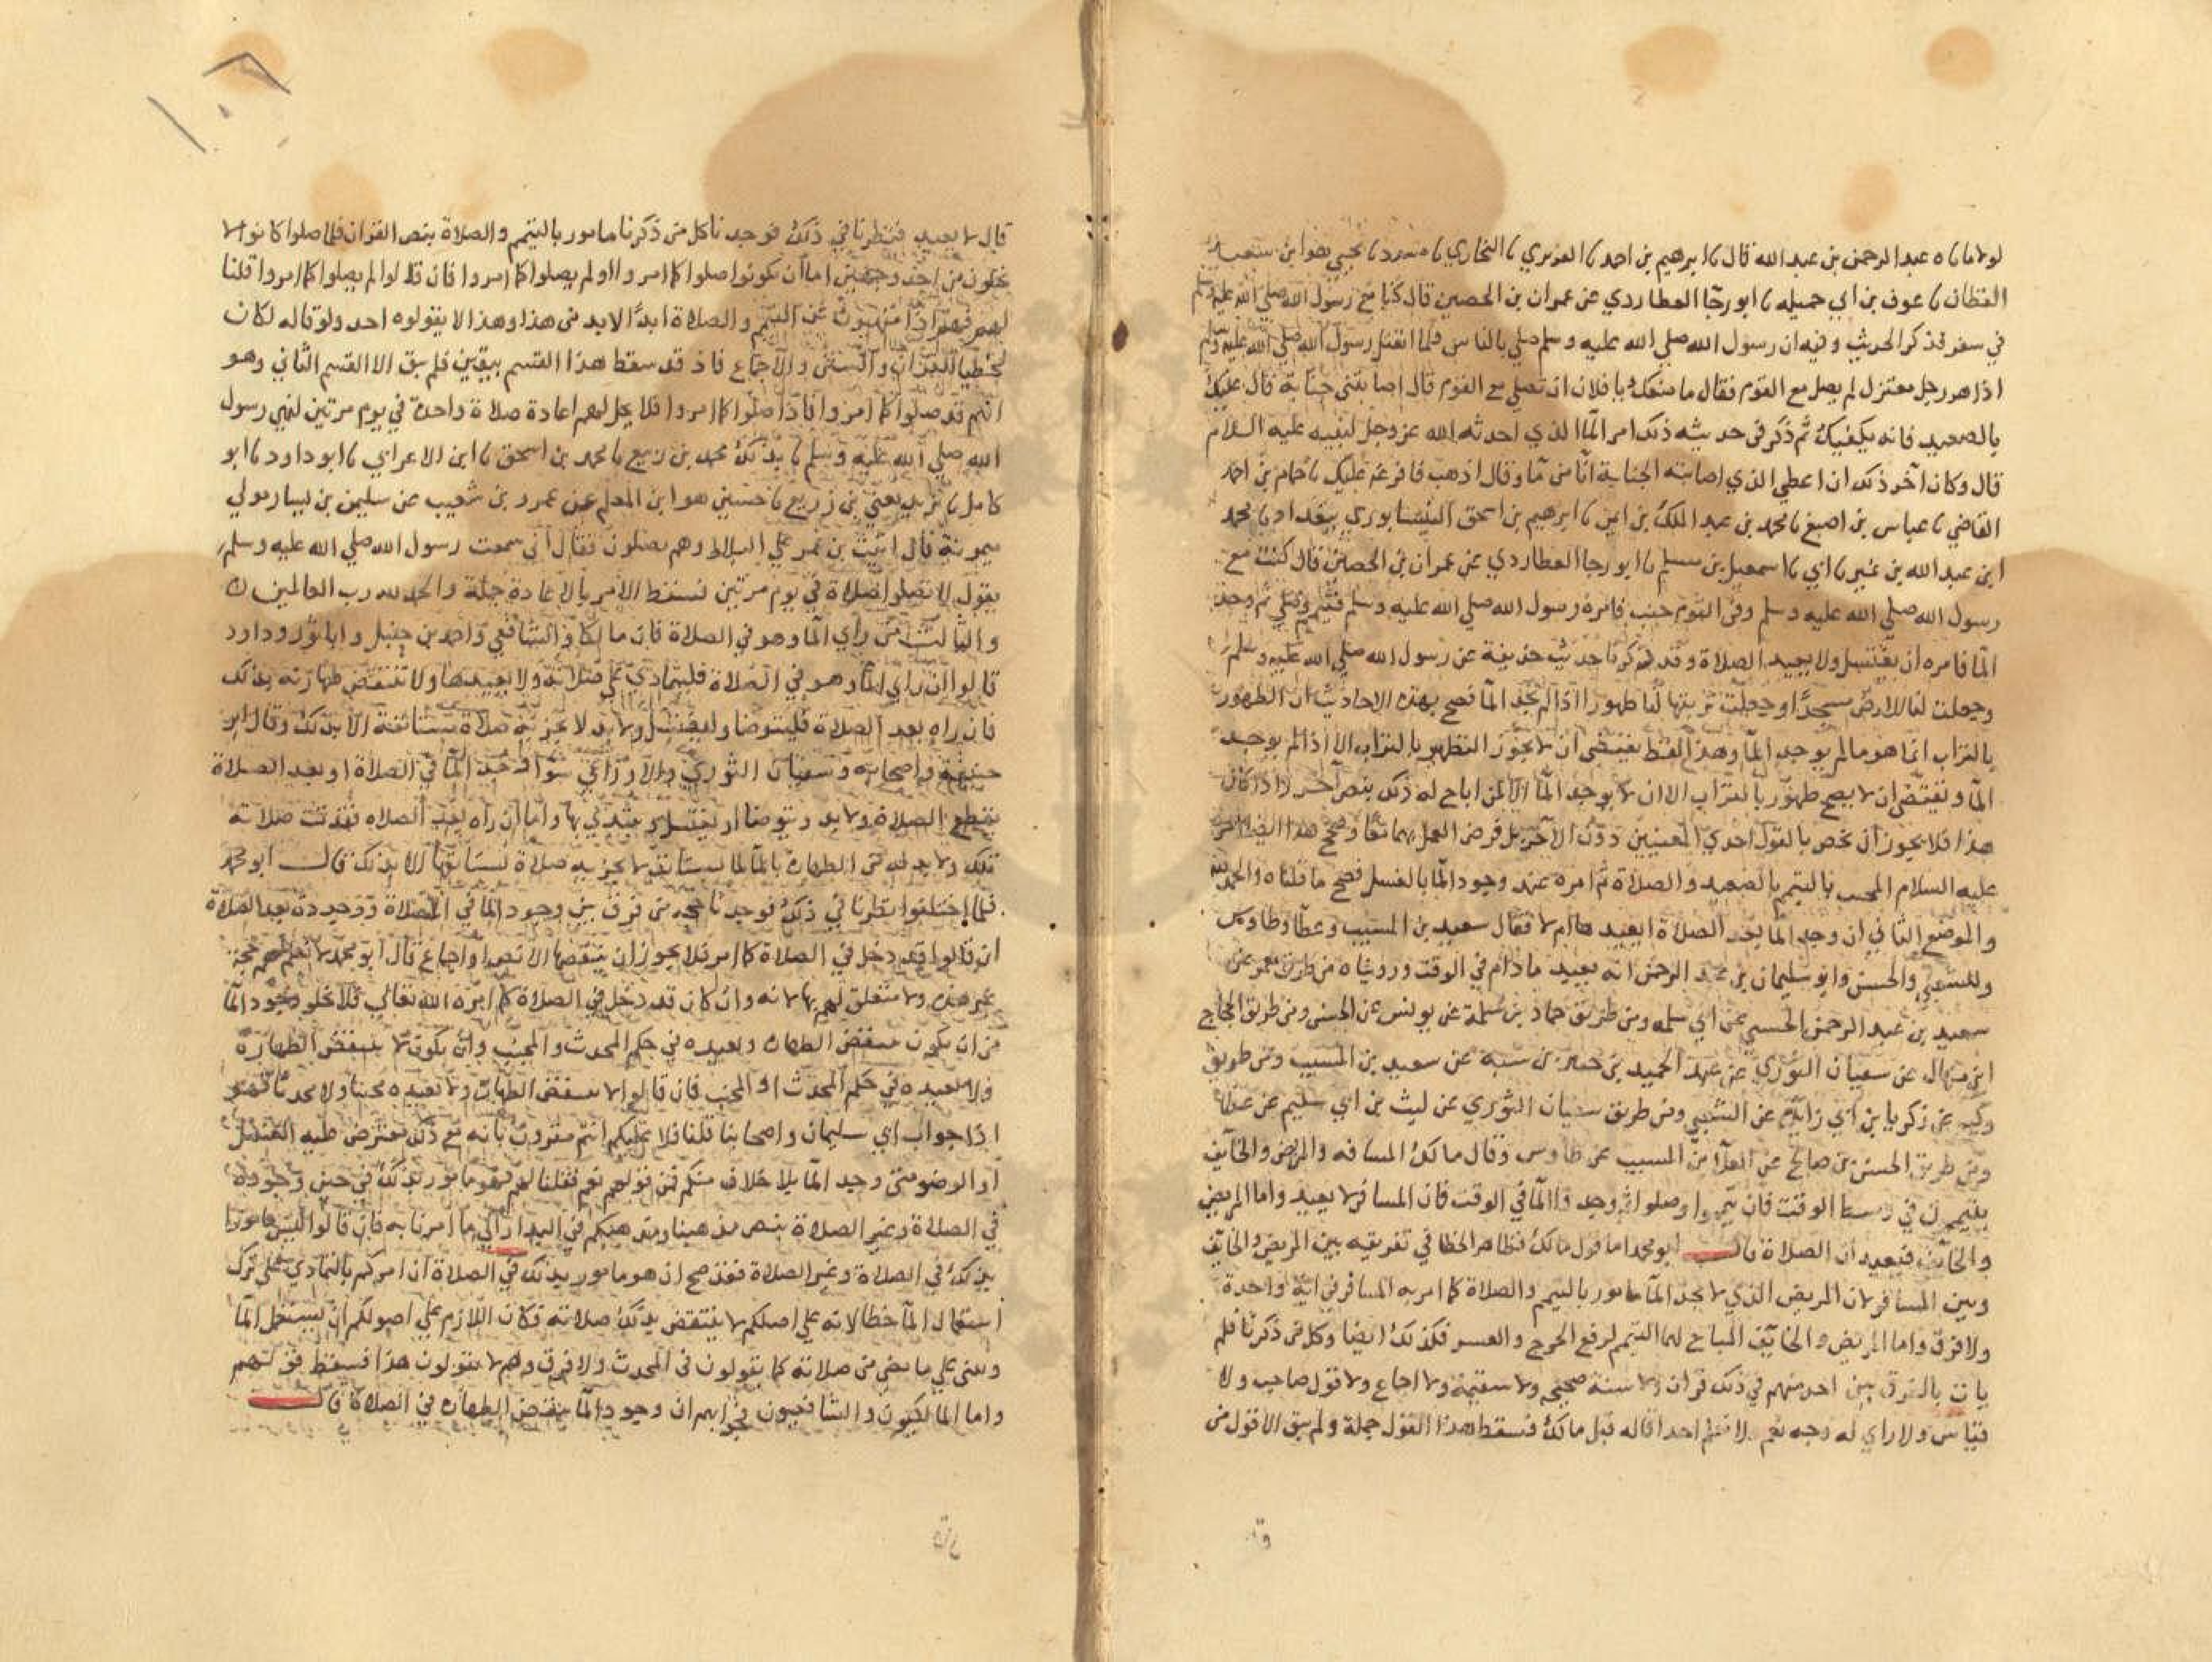 لولاما ٮا ه عبد الرحمن بن عبد الله قال ٮا ابرهيم بن احمد ٮا الفربري ٮا البخاري ٮا مسدد ٮا يحيي هوا بن سعيد
القطان ٮا عوف بن ابي جميله ٮا ابو رجا العطاردي عن عمران بن الحصين قال كنا مع رسول الله صلي الله عليه وسلم
في سفر فذكر الحديث وفيه ان رسول الله صلي الله عليه وسلم صلي بالناس فلما انفتل رسول الله صلي الله عليه وسلم
اذا هر رجل معتزل لم يصل مع القوم فقال ما منعك يا فلان ان تصلي مع القوم قال اصابتني جنابة قال عليك
بالصعيد فانه يكفيك ثم ذكر في حديثه ذلك امر المآ الذي احدثه الله عز وجل لنبيه عليه السلام
قال وكان آخر ذلك ان اعطي الذي اصابته الجنابة انآ من مآ وقال اذهب فافرغه عليك ٮا حمام بن احمد
القاضي ٮا عباس بن اصبغ ٮا محمد بن عبد الملك بن ايمن ٮا ابرهيم بن اسحق النيسابوري ببغداد ٮا محمد
ابن عبد الله بن نمير ٮا ابي ٮا اسمعيل بن مسلم ٮا ابو رجا العطاردي عن عمران بن الحصين قال كنت مع
رسول الله صلي الله عليه وسلم وفي القوم جنب فامره رسول الله صلي الله عليه وسلم فتيمم وصلي ثم وجد
المآ فامره ان يغتسل ولا يعيد الصلاة وقد ذكرنا حديث حذيفة عن رسول الله صلي الله عليه وسلم
وجعلت لنا الارض مسجدا وجعلت تربتها لنا طهورا اذا لم نجد المآ فصح بهذه الاحاديث ان الطهور
بالتراب انما هو مالم يوجد المآ وهذا لفظ يقتضي ان لا يجوز التطهر بالتراب الا اذا لم يوجد
المآ ويقتضي ان لا يصح طهور بالتراب الا ان لا يوجد المآ الا لمن اباح له ذلك بنص آخر واذا كان
هذا فلا يجوز ان نخص بالقول احدي المعنيين دون الآخر بل فرض العمل بهما معا وصح هذا ايضا
عليه السلام المجنب بالتيمم بالصعيد والصلاة ثم امره عند وجود المآ بالغسل فصح ما قلناه والحمد لله
والموضع الثاني ان وجد المآ بعد الصلاة ايعيد ها ام لا فقال سعيد بن المسيب وعطا وطاوس
والشعبي والحسن وابو سليمان بن عبد الرحمن انه يعيد ما دام في الوقت ورويناه من طريق معمر عن
سعيد بن عبد الرحمن عن ابي سلمه ومن طريق حماد بن سلمة عن يونس عن الحسن ومن طريق الحجاج
ابن منهال عن سفيان الثوري عن عبد الحميد بن جبير بن شيبة عن سعيد بن المسيب ومن طريق
وكيع عن زكريا بن ابي زايدة عن الشعبي ومن طريق سفيان الثوري عن ليث بن ابي سليم عن عطا
ومن طريق الحسن بن صالح عن العلآ بن المسيب عن طاوس وقال مالك المسافر والمريض والخايف
يتيممون في وسط الوقت فان تيمموا وصلوا ثم وجدوا المآ في الوقت فان المسافر لا يعيد واما المريض
والخايف فيعيدان الصلاة قال ابو محمد اما قول مالك فظاهر الخطا في تفريقه بين المريض والخايف
وبين المسافر لان المريض الذي لا يجد المآ مامور بالتيمم والصلاة كما امر به المسافر في اية واحدة
ولا فرق واما المريض والخايف المباح لهما التيمم لرفع الحرج والعسر فكذلك ايضا وكل من ذكرنا فلم
يات بالفرق بين احد منهم في ذلك قران ولا سنة صحيحه ولا سقيمة ولا اجماع ولا قول صاحب ولا
قياس ولا راي له وجه نعم ولا نعلم احدا قاله قبل مالك فسقط هذا القول جملة ولم يبق الا قول من
قال لا يعيد فنظرنا في ذلك فوجدنا كل من ذكرنا مامور بالتيمم والصلاة بنص القران فلما صلوا كانوا لا
يخلون من احد وجهين اما ان يكونوا صلوا كما امروا او لم يصلوا كما امروا فان قالوا لم يصلوا كما امروا قلنا
لهم فهم اذا منهيون عن التيمم والصلاة ابدا لا بد من هذا وهذا لا يقولوه احد ولو قاله لكان
مخطيا للقران والسنن والاجماع فاذ قد سقط هذا القسم بيقين فلم يبق الا القسم الثاني وهو
انهم قد صلوا كما امروا فاذا صلوا كما امروا فلا يحل لهم اعادة صلاة واحدة في يوم مرتين لنهي رسول
الله صلي الله عليه وسلم ٮا بذلك محمد بن ربيع ٮا محمد بن اسحق ٮا ابن الاعرابي ٮا ابو داود ٮا ابو
كامل ٮا يزيد يعني بن زريع ٮا حسين هو ابن المعلم عن عمرو بن شعيب عن سليمن بن يسار مولي
ميمونة قال اتيت بن عمر علي البلاط وهم يصلون فقال اني سمعت رسول الله صلي الله عليه وسلم
يقول لا تصلوا صلاة في يوم مرتين فسقط الامر بالاعادة جملة والحمد لله رب العالمين
والثالث من راي المآ وهو في الصلاة فان مالكا والشافعي واحمد بن حنبل وابا ثور وداود
قالوا ان راي المآ وهو في الصلاة فليتمادي علي صلاته ولا يعيدها ولا تنتقض طهارته بذلك
فان راه بعد الصلاة فليتوضا وليغتسل ولا بد لا تجزيه صلاة مستانفة الا بذلك وقال ابو
حنيفة واصحابه وسفيان الثوري والاوزاعي سوآ وجد المآ في الصلاة او بعد الصلاة
يقطع الصلاة ولا بد ويتوضا او يغتسل ويبتدي بها واما ان راه بعد الصلاه فقد تمت صلاته
تلك ولا بد له من الطهارة بالمآ لما يستانف لا تجزيه صلاة يستانفها الا بذلك قال ابو محمد
فلما اختلفوا نظرنا في ذلك فوجدنا حجة من فرق بين وجود المآ في الصلاة ووجوده بعد الصلاة
ان قالوا قد دخل في الصلاة كما امر فلا يجوز ان ينقضها الا بنص او اجماع قال ابو محمد لا نعلم لهم حجة
غير هذه ولا متعلق لهم بها لانه وان كان قد دخل في الصلاة كما امره الله تعالي فلا يخلو وجود المآ
من ان يكون ينقض الطهارة ويعيده في حكم المحدث والمجنب وان يكون لا ينقض الطهارة
ولا يعيده في حكم المحدث او المجنب فان قالوا لا ينقض الطهارة ولا يعيده مجنبا ولا محدثا فهو
اذا جواب ابي سليمان واصحابنا قلنا فلا عليكم انتم مقرون بانه مع ذلك مفترض عليه الغسل
او الوضو متي وجد المآ بلا خلاف منكم فمن قولهم نعم فقلنا لهم فهو مامور بذلك في حين وجوده
في الصلاة وغير الصلاة بنص مذهبنا ومذهبكم في البدار الي ما امرنا به فان قالوا ليس مامورا
بذلك في الصلاة وغير الصلاة فقد صح ان هو مامور بذلك في الصلاة ان امركم بالتمادي علي ترك
استعمال المآ خطا لانه علي اصلكم لا ينتقض بذلك صلاته فكان اللازم علي اصولكم ان يستعمل المآ
ويبني علي ما مضي من صلاته كما يقولون في المحدث ولا فرق وهم لا يقولون هذا فسقط قولهم
واما المالكيون والشافعيون فجوابهم ان وجود المآ ينقض الطهارة في الصلاة قال